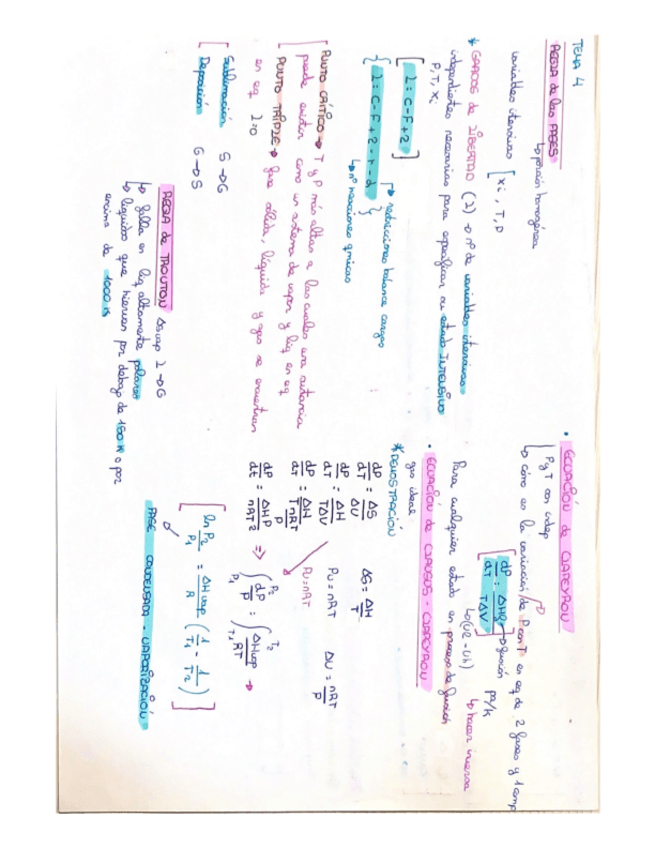 TEMA 4
REGLA de las FASES
↳ porción homogénea
variables intensivas [ xi, T, P
* GRADOS de LIBERTAD (L) → nº de variables intensivas
independientes necesarias para especificar su estado INTENSIVO
P, T, xi
[ L = C - F + 2 ]
{ L = C - F + 2 - r - a }
↳ restricciones balance cargas
↳ nº reacciones qmicas
PUNTO CRÍTICO → T y P más altas a las cuales una sustancia
puede existir como un sistema de vapor y liq en eq
PUNTO TRIPLE → fase sólida, líquida y gas se encuentran
en eq L=0
Sublimación S → G
Deposición G → S
REGLA de TROUTON ΔSvap L → G
↳ falla en liq altamente polares
↳ líquidos que hierven por debajo de 150 K o por
encima de 1000 K
• ECUACIÓN de CLAPEYRON
P y T son indep
↳ cómo es la variación de P con T en eq de 2 fases y 1 comp
[ dP/dT = ΔH / TΔV ] fusión Pa/K
↳ hacer inversa
Para cualquier estado en proceso de fusión
• ECUACIÓN de CLAUSIUS - CLAPEYRON
gas ideal
* DEMOSTRACIÓN
dP/dT = ΔS/ΔV ΔS = ΔH/T
dP/dT = ΔH/TΔV PV = nRT ΔV = nRT/P
dP/dT = ΔH / T nRT/P PV = nRT
dP/dt = ΔH P / nRT² => ∫P1 P2 dP/P = ∫T1 T2 ΔHvap/RT →
[ ln P2/P1 = ΔHvap/R ( 1/T1 - 1/T2 ) ]
FASE CONDENSADA - VAPORIZACIÓN